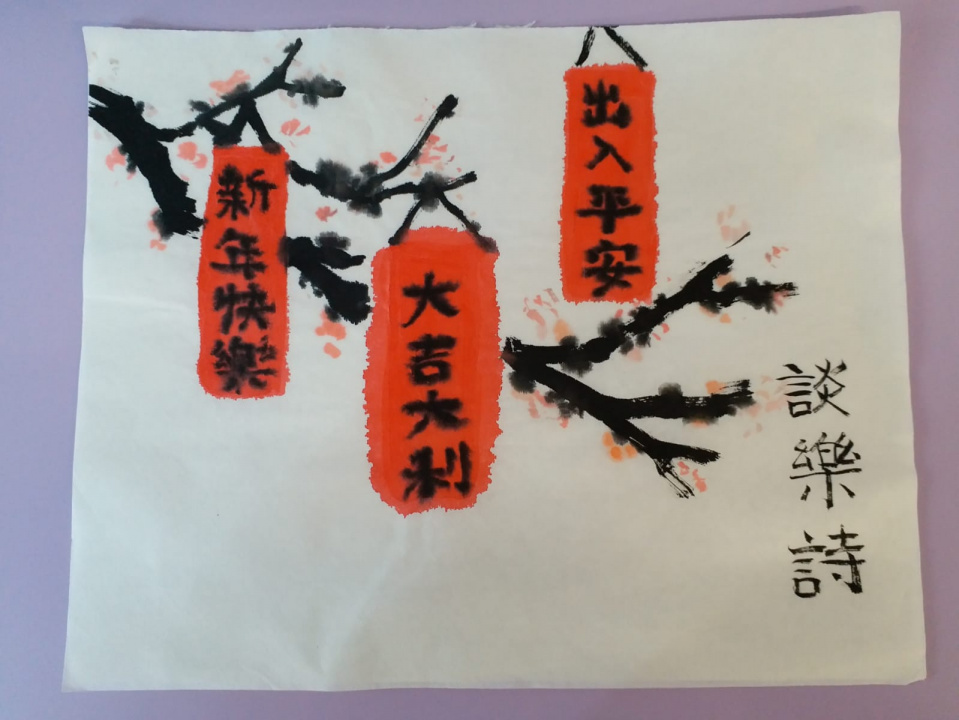 新年快樂
大吉大利
出入平安
談樂詩